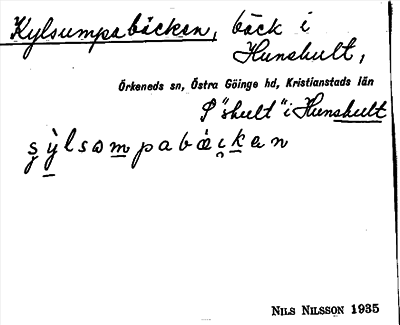 Kylsumpabäcken, bäck i
Hunshult,
Örkeneds sn, Östra Göinge hd, Kristianstads län
"shult" i Hunshult
NILS NILSSON 1935